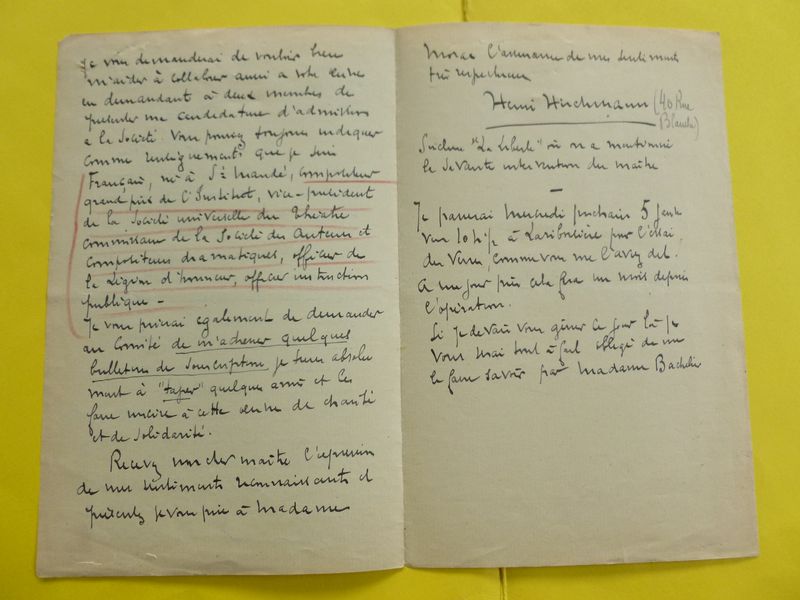 Je vous demanderai de vouloir bien
m'aider à collaborer aussi a votre œuvre
en demandant à deux membres de
présenter ma candidature d'admission
a la Société. Vous pouvez toujours indiquer
comme renseignements que je suis
Français, né à St Mandé, compositeur
grand prix de l'Institut, vice-président
de la Société universelle du Théâtre
Commissaire de la Société des Auteurs et
Compositeurs dramatiques, officier de
la Légion d'honneur, officier instruction
publique -
Je vous prierai également de demander
au Comité de m'adresser quelques
bulletins de souscription, je tiens absolu
ment à "taper" quelques amis et les
faire inscrire à cette œuvre de charité
et de solidarité.
Recevez mon cher maître l'expression
de mes sentiments reconnaissants et
présentez je vous prie à Madame
l'assurance de mes sentiments
très respectueux
Henri Hirchmann (40 Rue
Blanche)
"La Liberté" où on a mentionné
la savante intervention du maître
—
Je passerai Mercredi prochain 5
vers 10h½ à Lariboisière pour l'essai
des verres, comme vous me l'avez dit.
A un jour près cela fera un mois depuis
l'opération.
Si je devais vous gêner ce jour là je
vous tout à fait obligé de me
le faire savoir par Madame